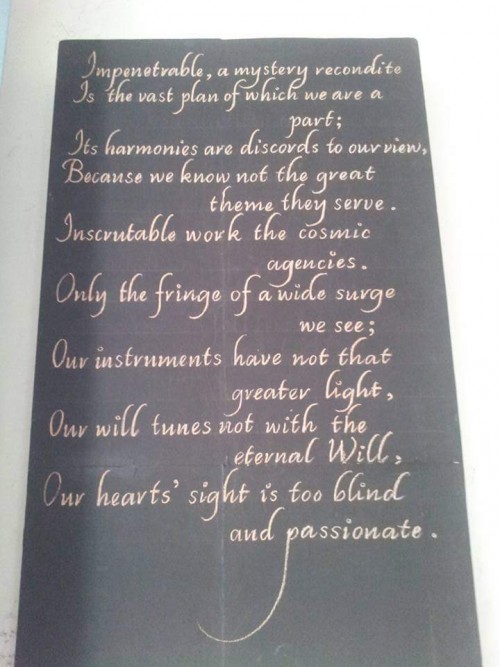 Impenetrable, a mystery recondite
Is the vast plan of which we are a
part;
Its harmonies are discords to our view,
Because we know not the great
theme they serve.
Inscrutable work the cosmic
agencies.
Only the fringe of a wide surge
we see;
Our instruments have not that
greater light,
Our will tunes not with the
eternal Will,
Our hearts' sight is too blind
and passionate.